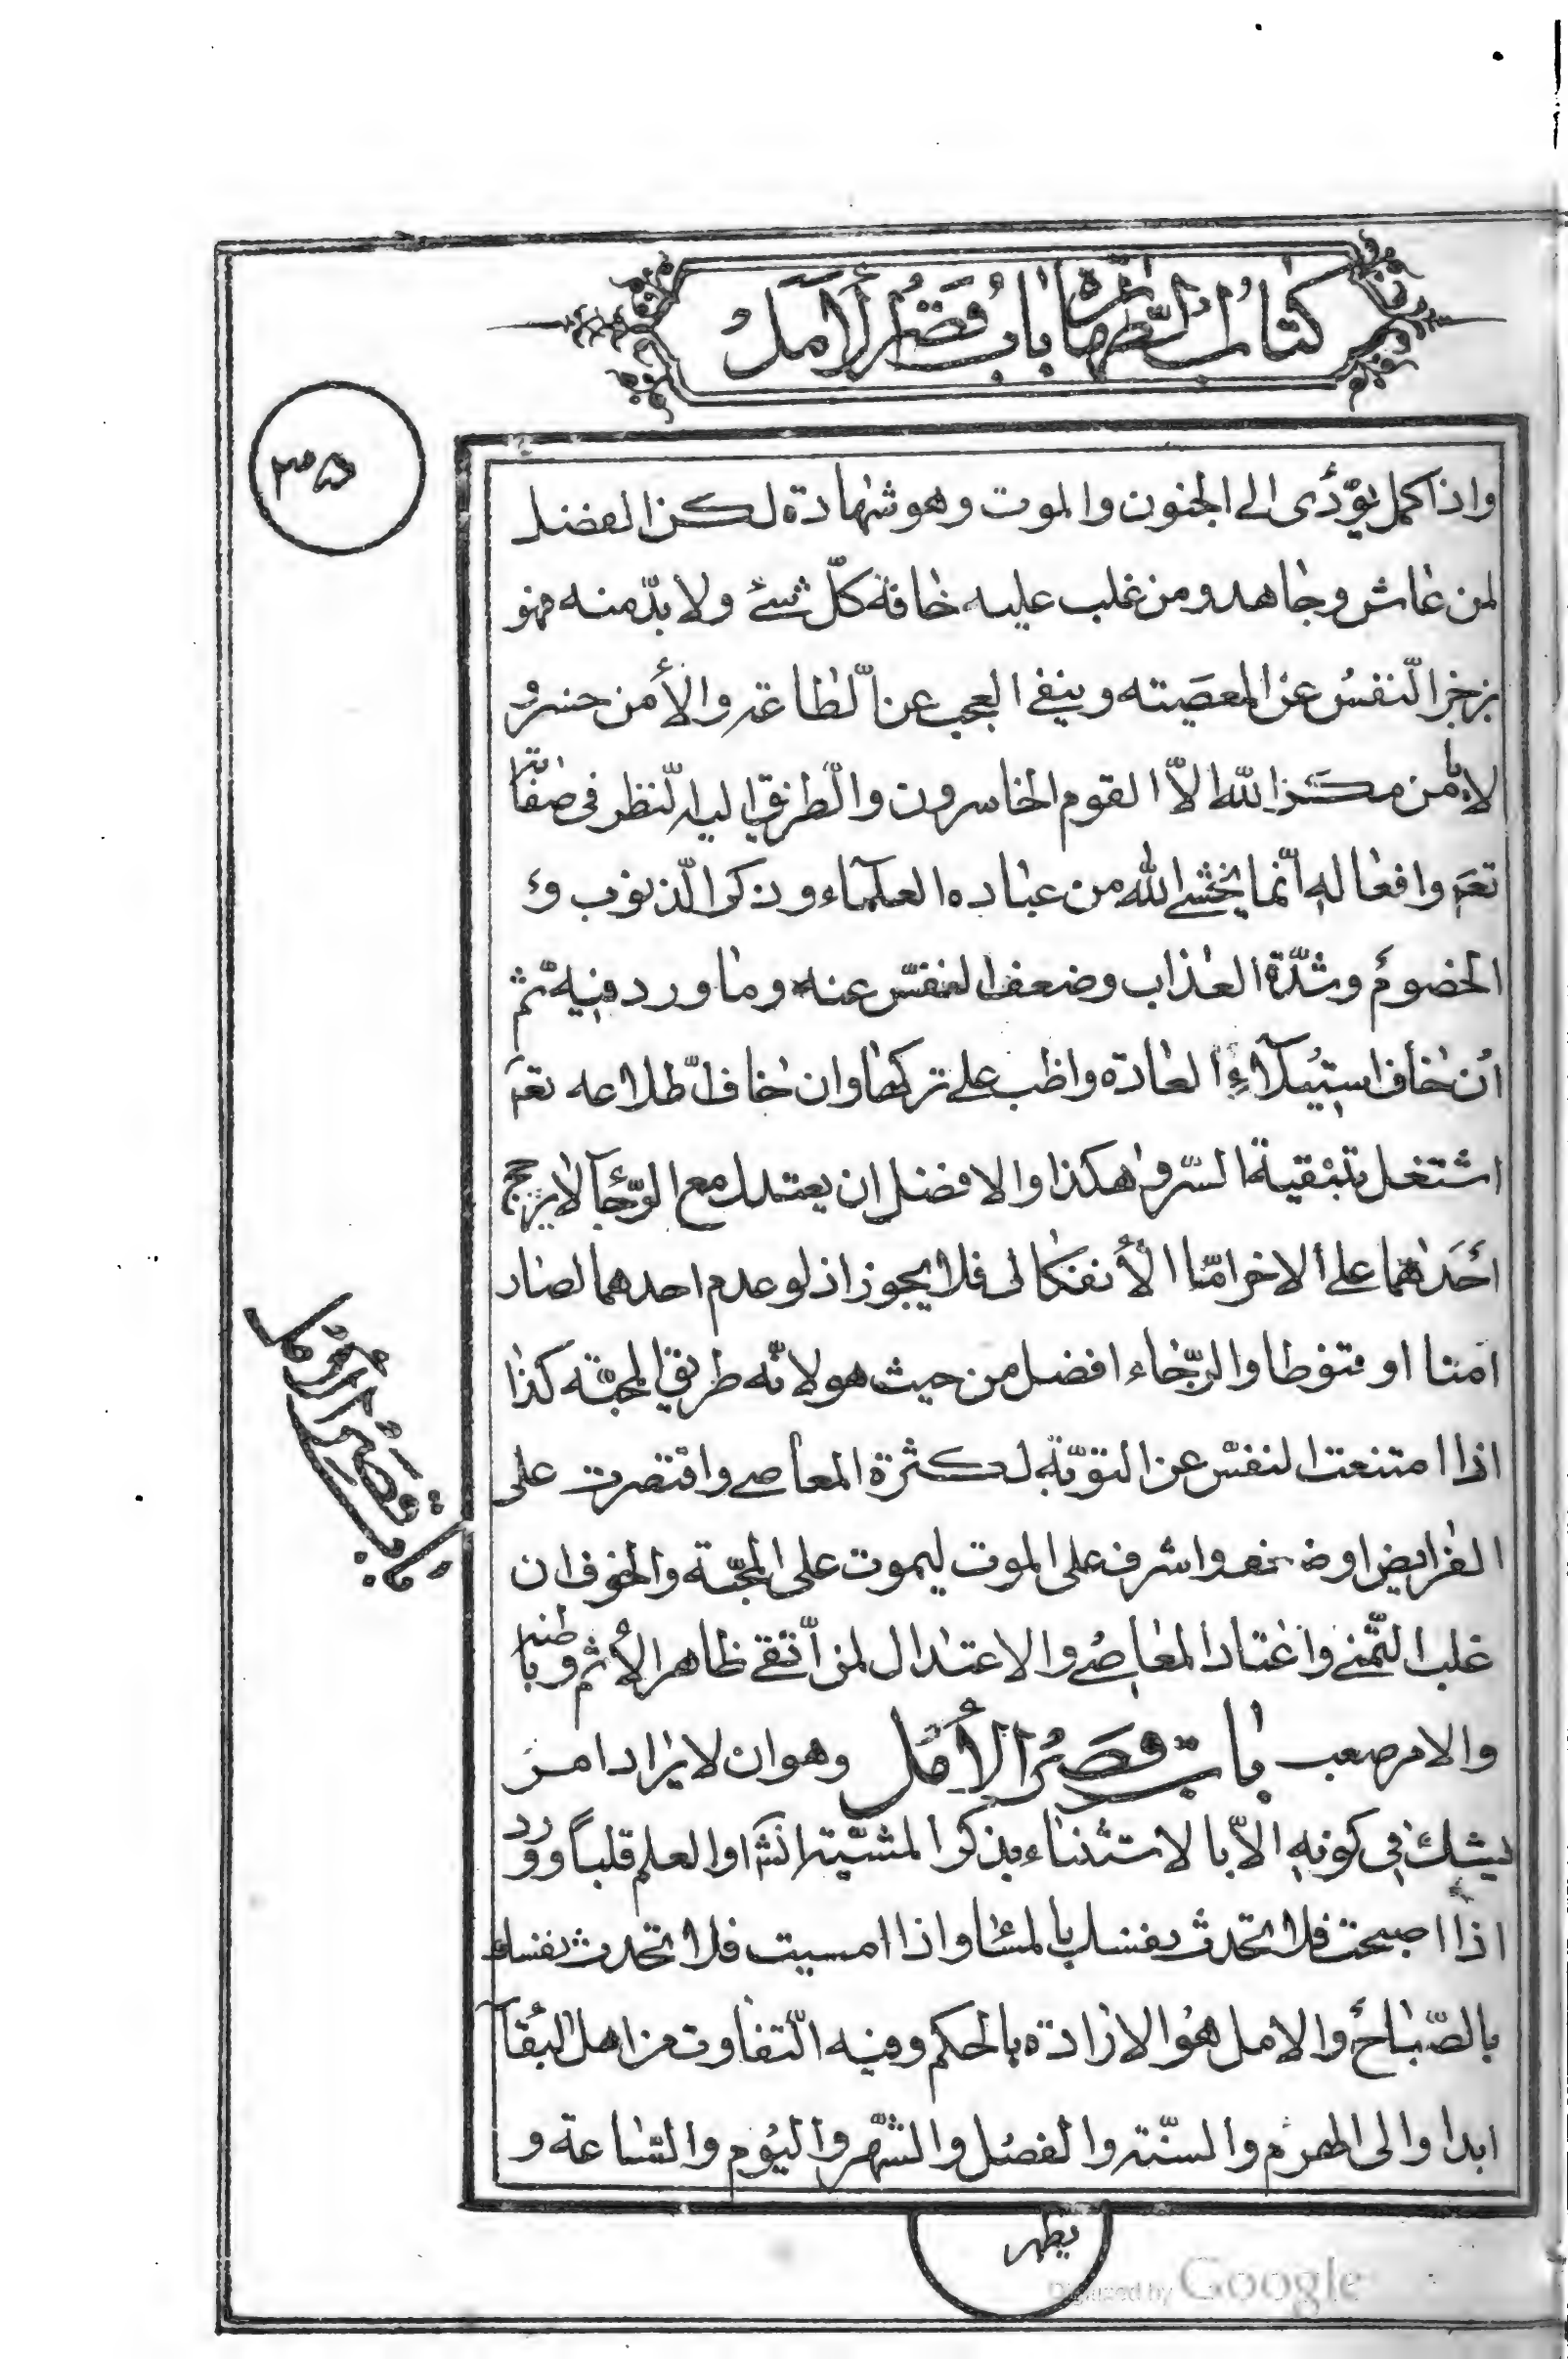 كتاب الطهارة باب قصر الأمل
٣٥
واذا كمل يؤدى الى الجنون والموت وهو شهادة لكن الفضل
لمن عاش وجاهد ومن غلب عليه خافه كلّ شئ ولا بدّ منه فهو
يزجر النّفس عن المعصيته وينفى العجب عن الطاعة والأمن خسرٌ
لا يأمن مكر الله الاّ القوم الخاسرون والطريق اليه النّظر فى صفاته
تعم وافعاله انّما يخشى الله من عباده العلمآء وذكر الذّنوب و
الخصوم وشدّة العذاب وضعف النفس عنه وما ورد فيه ثم
ان خاف استيلآء العادة واظب على تركها وان خاف اطّلاعه تعم
اشتغل بتنقية السرّ وهكذا والافضل ان يعتدل مع الرّجآ لا يرجح
احَدهما على الاخر امّا الأنفكاك فلا يجوز اذ لو عدم احدهما لصار
امنا او قنوطا والرّجاء افضل من حيث هو لانّه طريق المحبّة كذا
اذا امتنعت النفس عن التوبة لكثرة المعاصى واقتصرت على
الفرايض او ضعف واشرف على الموت ليموت على المحبّة والخوف ان
غلب التّمنى واعتاد المعاصى والاعتدال لمن اتّقى ظاهر الأثم وباطنه
والامر صعب باب قصر الأمل وهو ان لا يراد امر
يشك فى كونه الاّ بالاستثناء بذكر المشيّة انشآ او العلم قلباً وورد
اذا اصبحت فلا تحدث نفسك بالمسآ واذا امسيت فلا تحدث نفسك
بالصّباح والامل هو الارادة بالحكم وفيه التّفاوت من اهل البقآ
ابدا والى الهرم والسنّة والفصل والشّهر واليوم والسّاعة و
باب قصر الأمل
يظهر
Digitized by Google